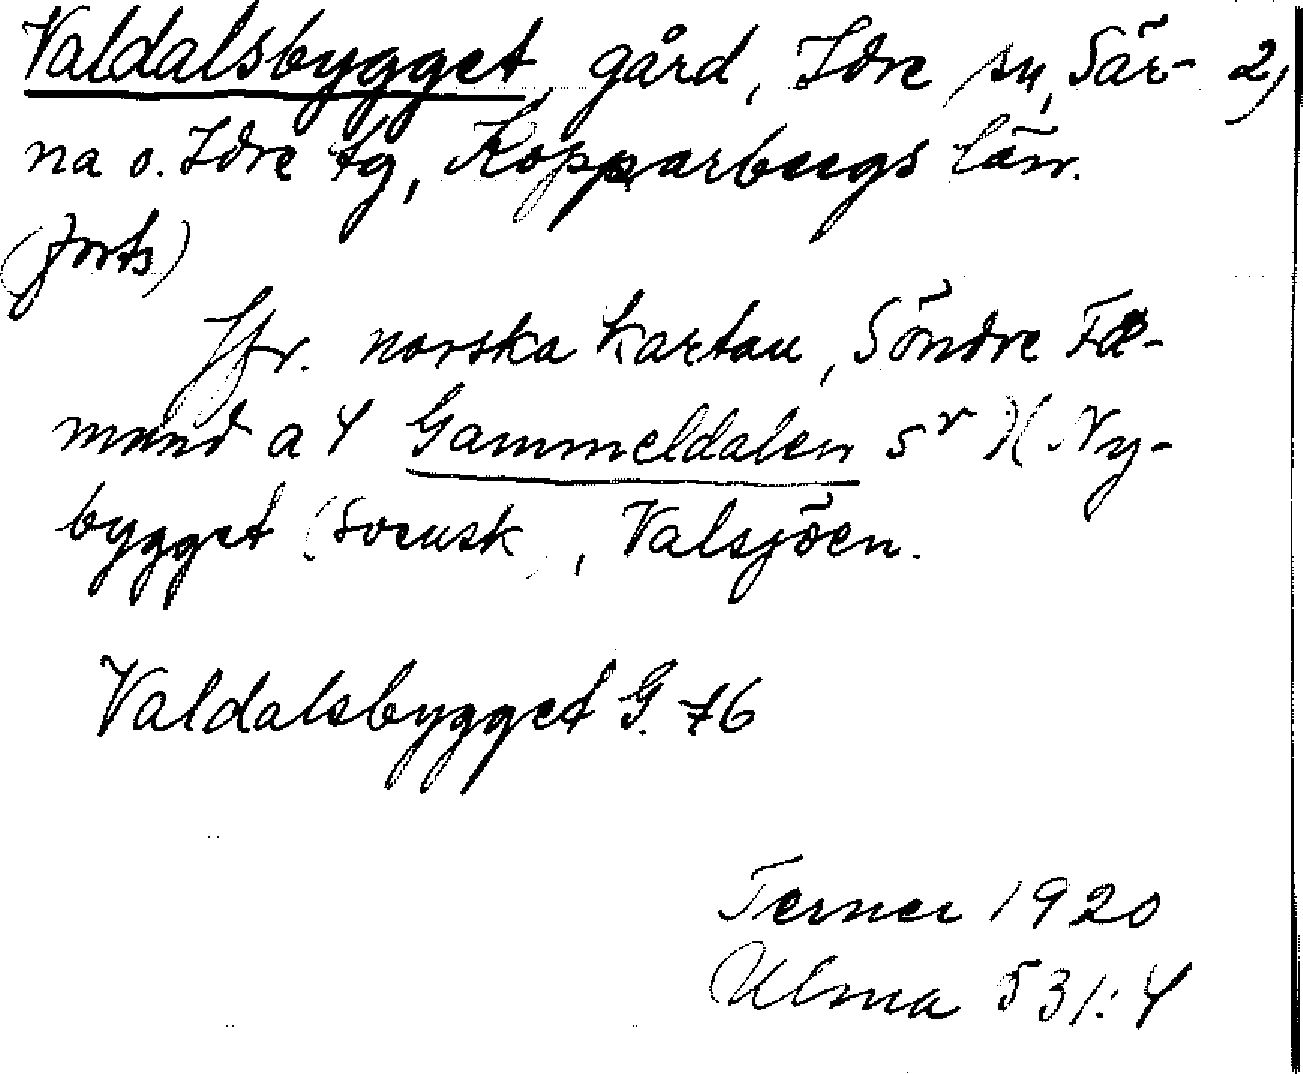 Valdalsbygget, gård, Idre sn, Sär- 2)
na o. Idre tg, Kopparbergs län.
(forts)
Jfr. norska kartan, Söndre Fæ-
mund a 4 Gammeldalen sr )( Ny-
bygget (svensk), Valsjöen.
Valdalsbygget G. 76
Terner 1920
Ulma 531:4